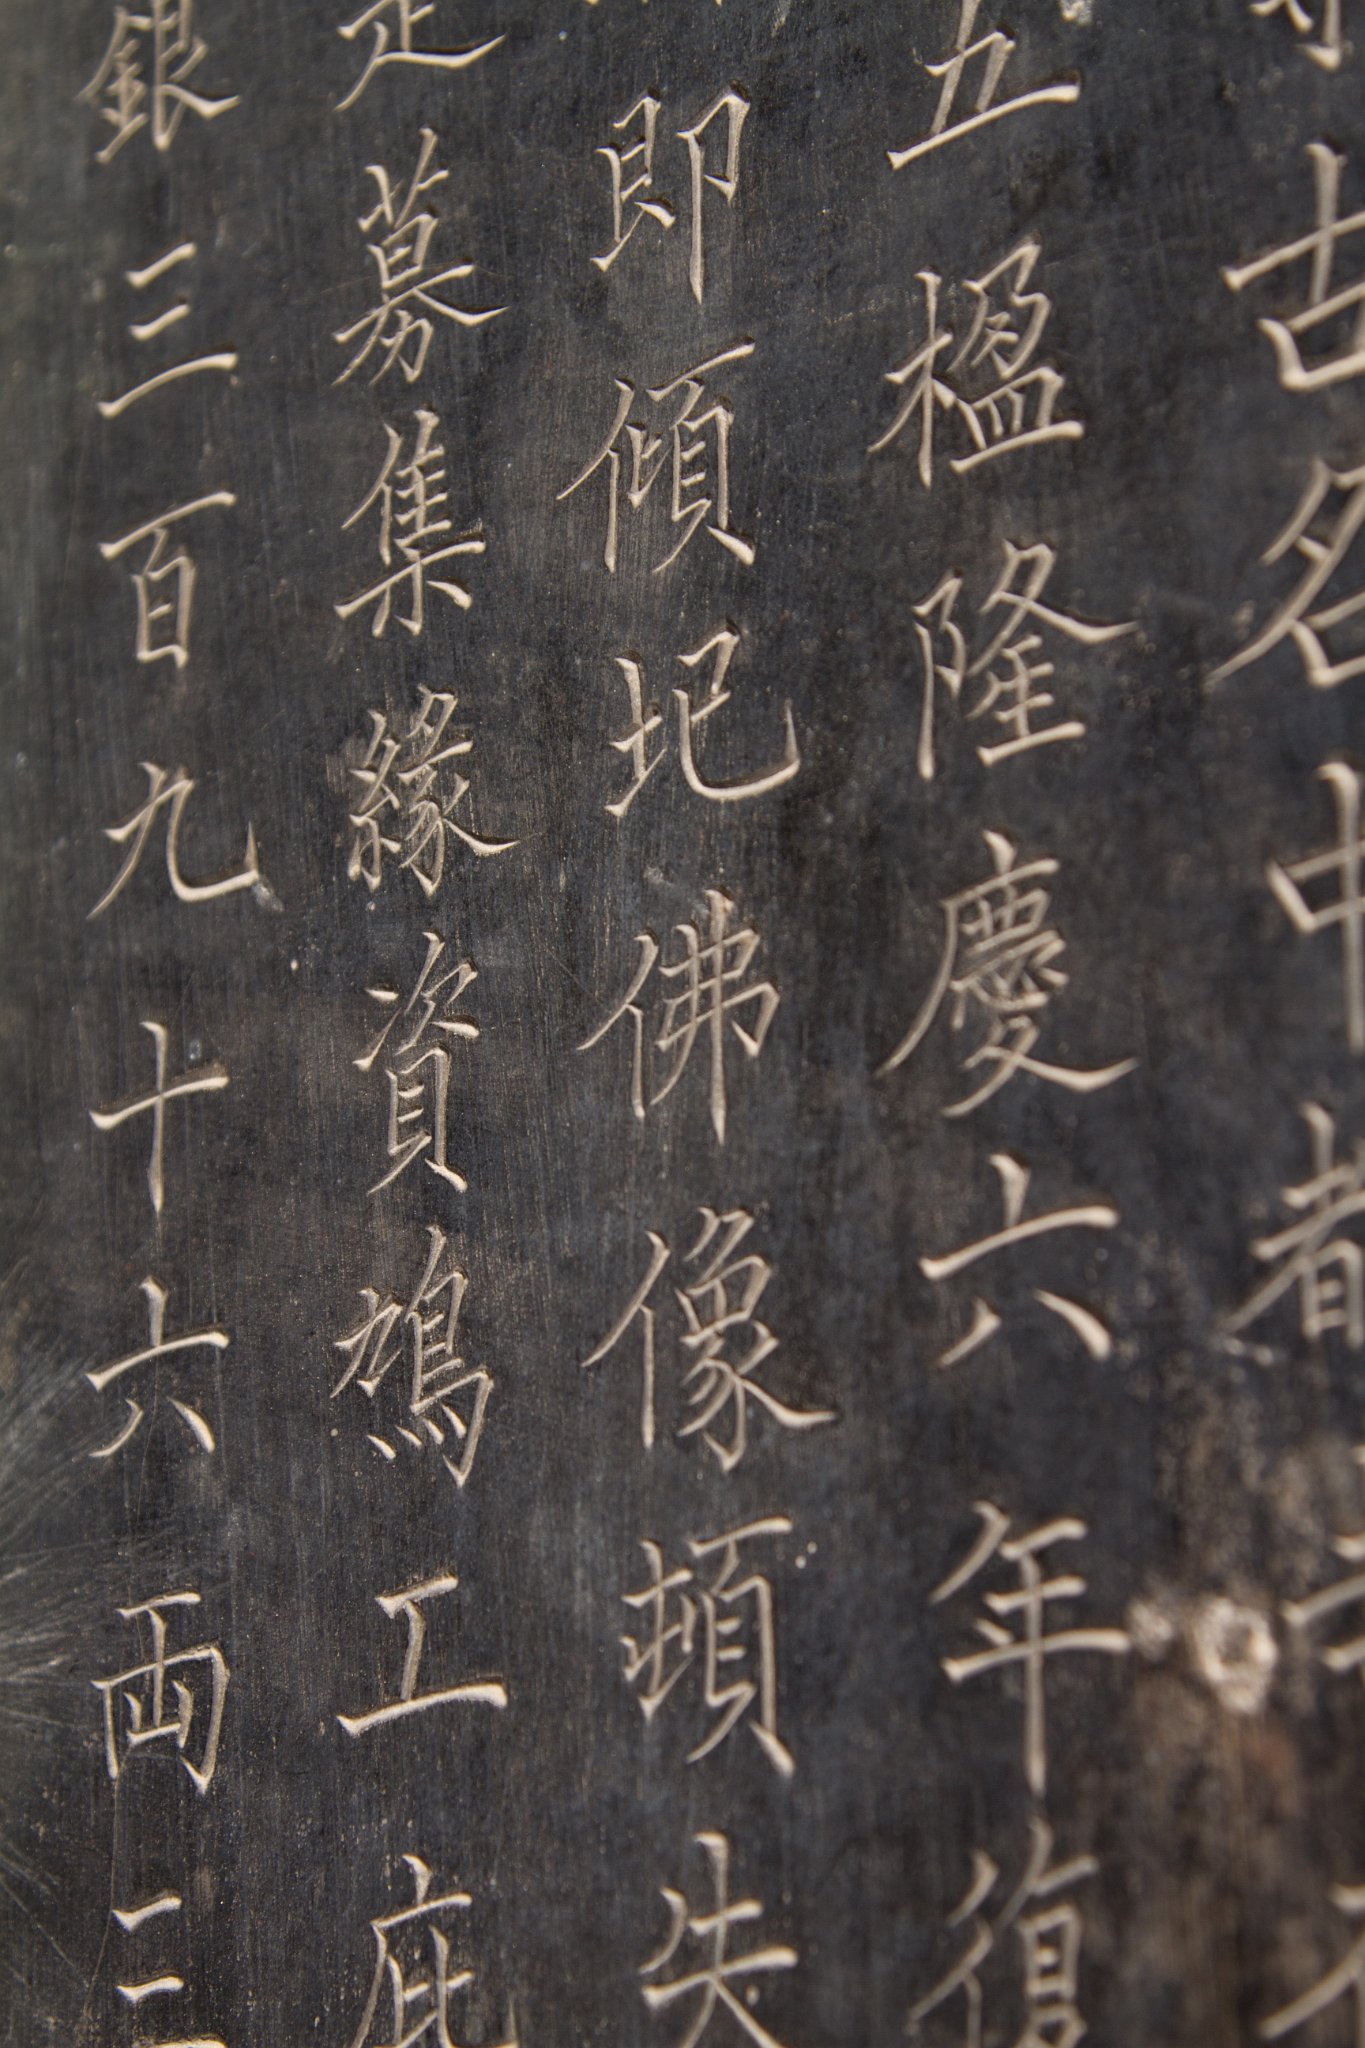 古名中都
五楹隆慶六年復
即傾圯佛像頓失
募集緣資鳩工庇
銀三百九十六両三